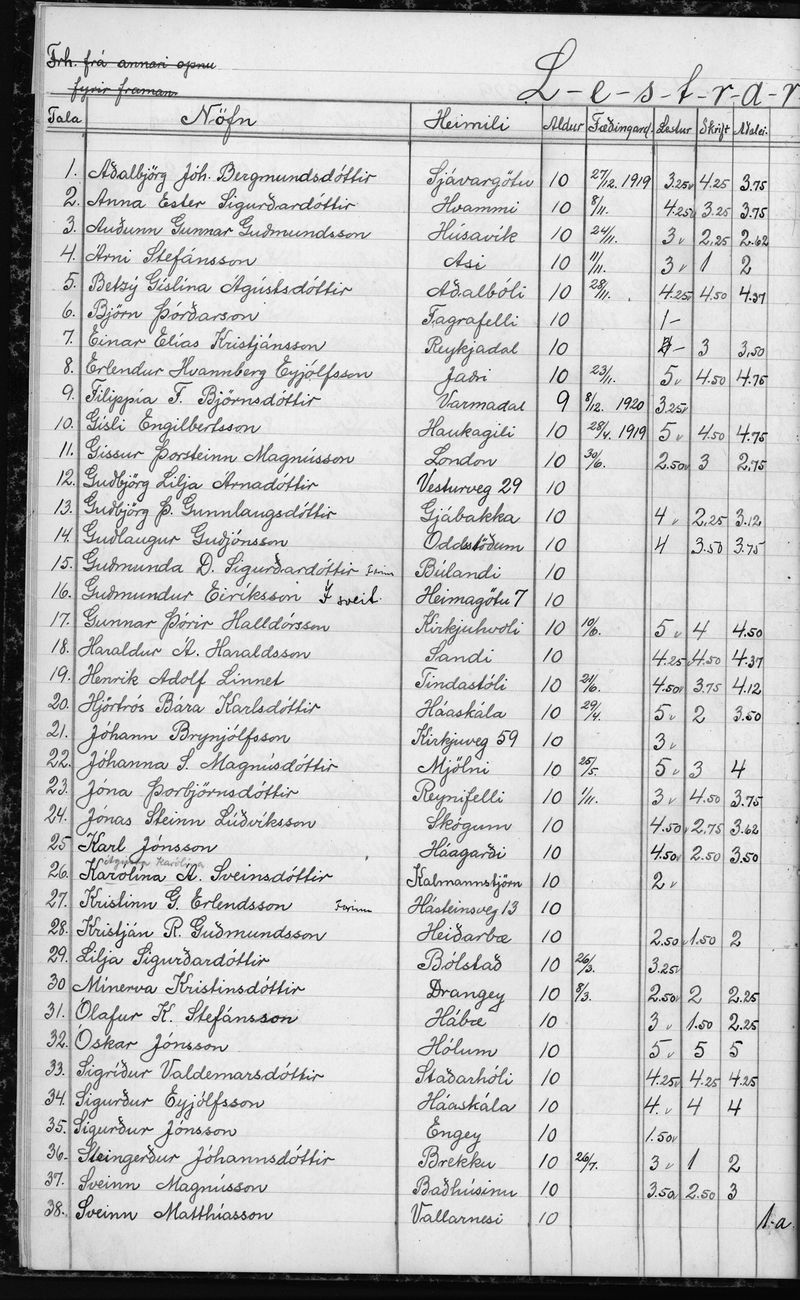 Frh. frá annari opnu
fyrir framan.
L-e-s-t-r-a-r
Tala Nöfn Heimili Aldur Fæðingard. Lestur Skrift Aðalei.
1. Aðalbjörg Jóh. Bergmundsdóttir Sjávargötu 10 27/12. 1919 3.25v 4.25 3.75
2. Anna Ester Sigurðardóttir Hvammi 10 8/11. 4.25v 3.25 3.75
3. Auðunn Gunnar Guðmundsson Húsavík 10 24/11. 3v 2.25 2.62
4. Árni Stefánsson Ási 10 11/11. 3v 1 2
5. Betzý Gíslína Ágústsdóttir Aðalbóli 10 28/11. 4.25v 4.50 4.37
6. Björn Þórðarson Fagrafelli 10 1-
7. Einar Elías Kristjánsson Reykjadal 10 4- 3 3.50
8. Erlendur Hvannberg Eyjólfsson Jaðri 10 23/11. 5v 4.50 4.75
9. Filippía F. Björnsdóttir Varmadal 9 8/12. 1920 3.25v
10. Gísli Engilbertsson Haukagili 10 28/4. 1919 5v 4.50 4.75
11. Gissur Þorsteinn Magnússon London 10 30/6. 2.50v 3 2.75
12. Guðbjörg Lilja Árnadóttir Vesturveg 29 10
13. Guðbjörg Þ. Gunnlaugsdóttir Gjábakka 10 4v 2.25 3.12
14. Guðlaugur Guðjónsson Oddsstöðum 10 4 3.50 3.75
15. Guðmunda D. Sigurðardóttir Farin Búlandi 10
16. Guðmundur Eiríksson Í sveit. Heimagötu 7 10
17. Gunnar Þórir Halldórsson Kirkjuhvoli 10 10/6. 5v 4 4.50
18. Haraldur Á. Haraldsson Sandi 10 4.25v 4.50 4.37
19. Henrik Adolf Linnet Tindastóli 10 21/6. 4.50v 3.75 4.12
20. Hjörtrós Bára Karlsdóttir Háaskála 10 29/4. 5v 2 3.50
21. Jóhann Brynjólfsson Kirkjuveg 59 10 3v
22. Jóhanna S. Magnúsdóttir Mjölni 10 25/5. 5v 3 4
23. Jóna Þorbjörnsdóttir Reynifelli 10 1/11. 3v 4.50 3.75
24. Jónas Steinn Lúðvíksson Skógum 10 4.50v 2.75 3.62
25 Karl Jónsson Háagarði 10 4.50v 2.50 3.50
Karólína
26. Karólína A. Sveinsdóttir Kalmannstjörn 10 2v
27. Kristinn G. Erlendsson Farinn Hásteinsveg 13 10
28. Kristján R. Guðmundsson Heiðarbæ 10 2.50v 1.50 2
29. Lilja Sigurðardóttir Bólstað 10 26/3. 3.25v
30 Mínerva Kristinsdóttir Drangey 10 8/3. 2.50v 2 2.25
31. Ólafur K. Stefánsson Hábæ 10 3v 1.50 2.25
32. Óskar Jónsson Hólum 10 5v 5 5
33. Sigríður Valdemarsdóttir Staðarhóli 10 4.25v 4.25 4.25
34. Sigurður Eyjólfsson Háaskála 10 4.v 4 4
35. Sigurður Jónsson Engey 10 1.50v
36. Steingerður Jóhannsdóttir Brekku 10 26/7. 3v 1 2
37. Sveinn Magnússon Baðhúsinu 10 3.50 2.50 3
38. Sveinn Matthíasson Vallarnesi 10
1-a.